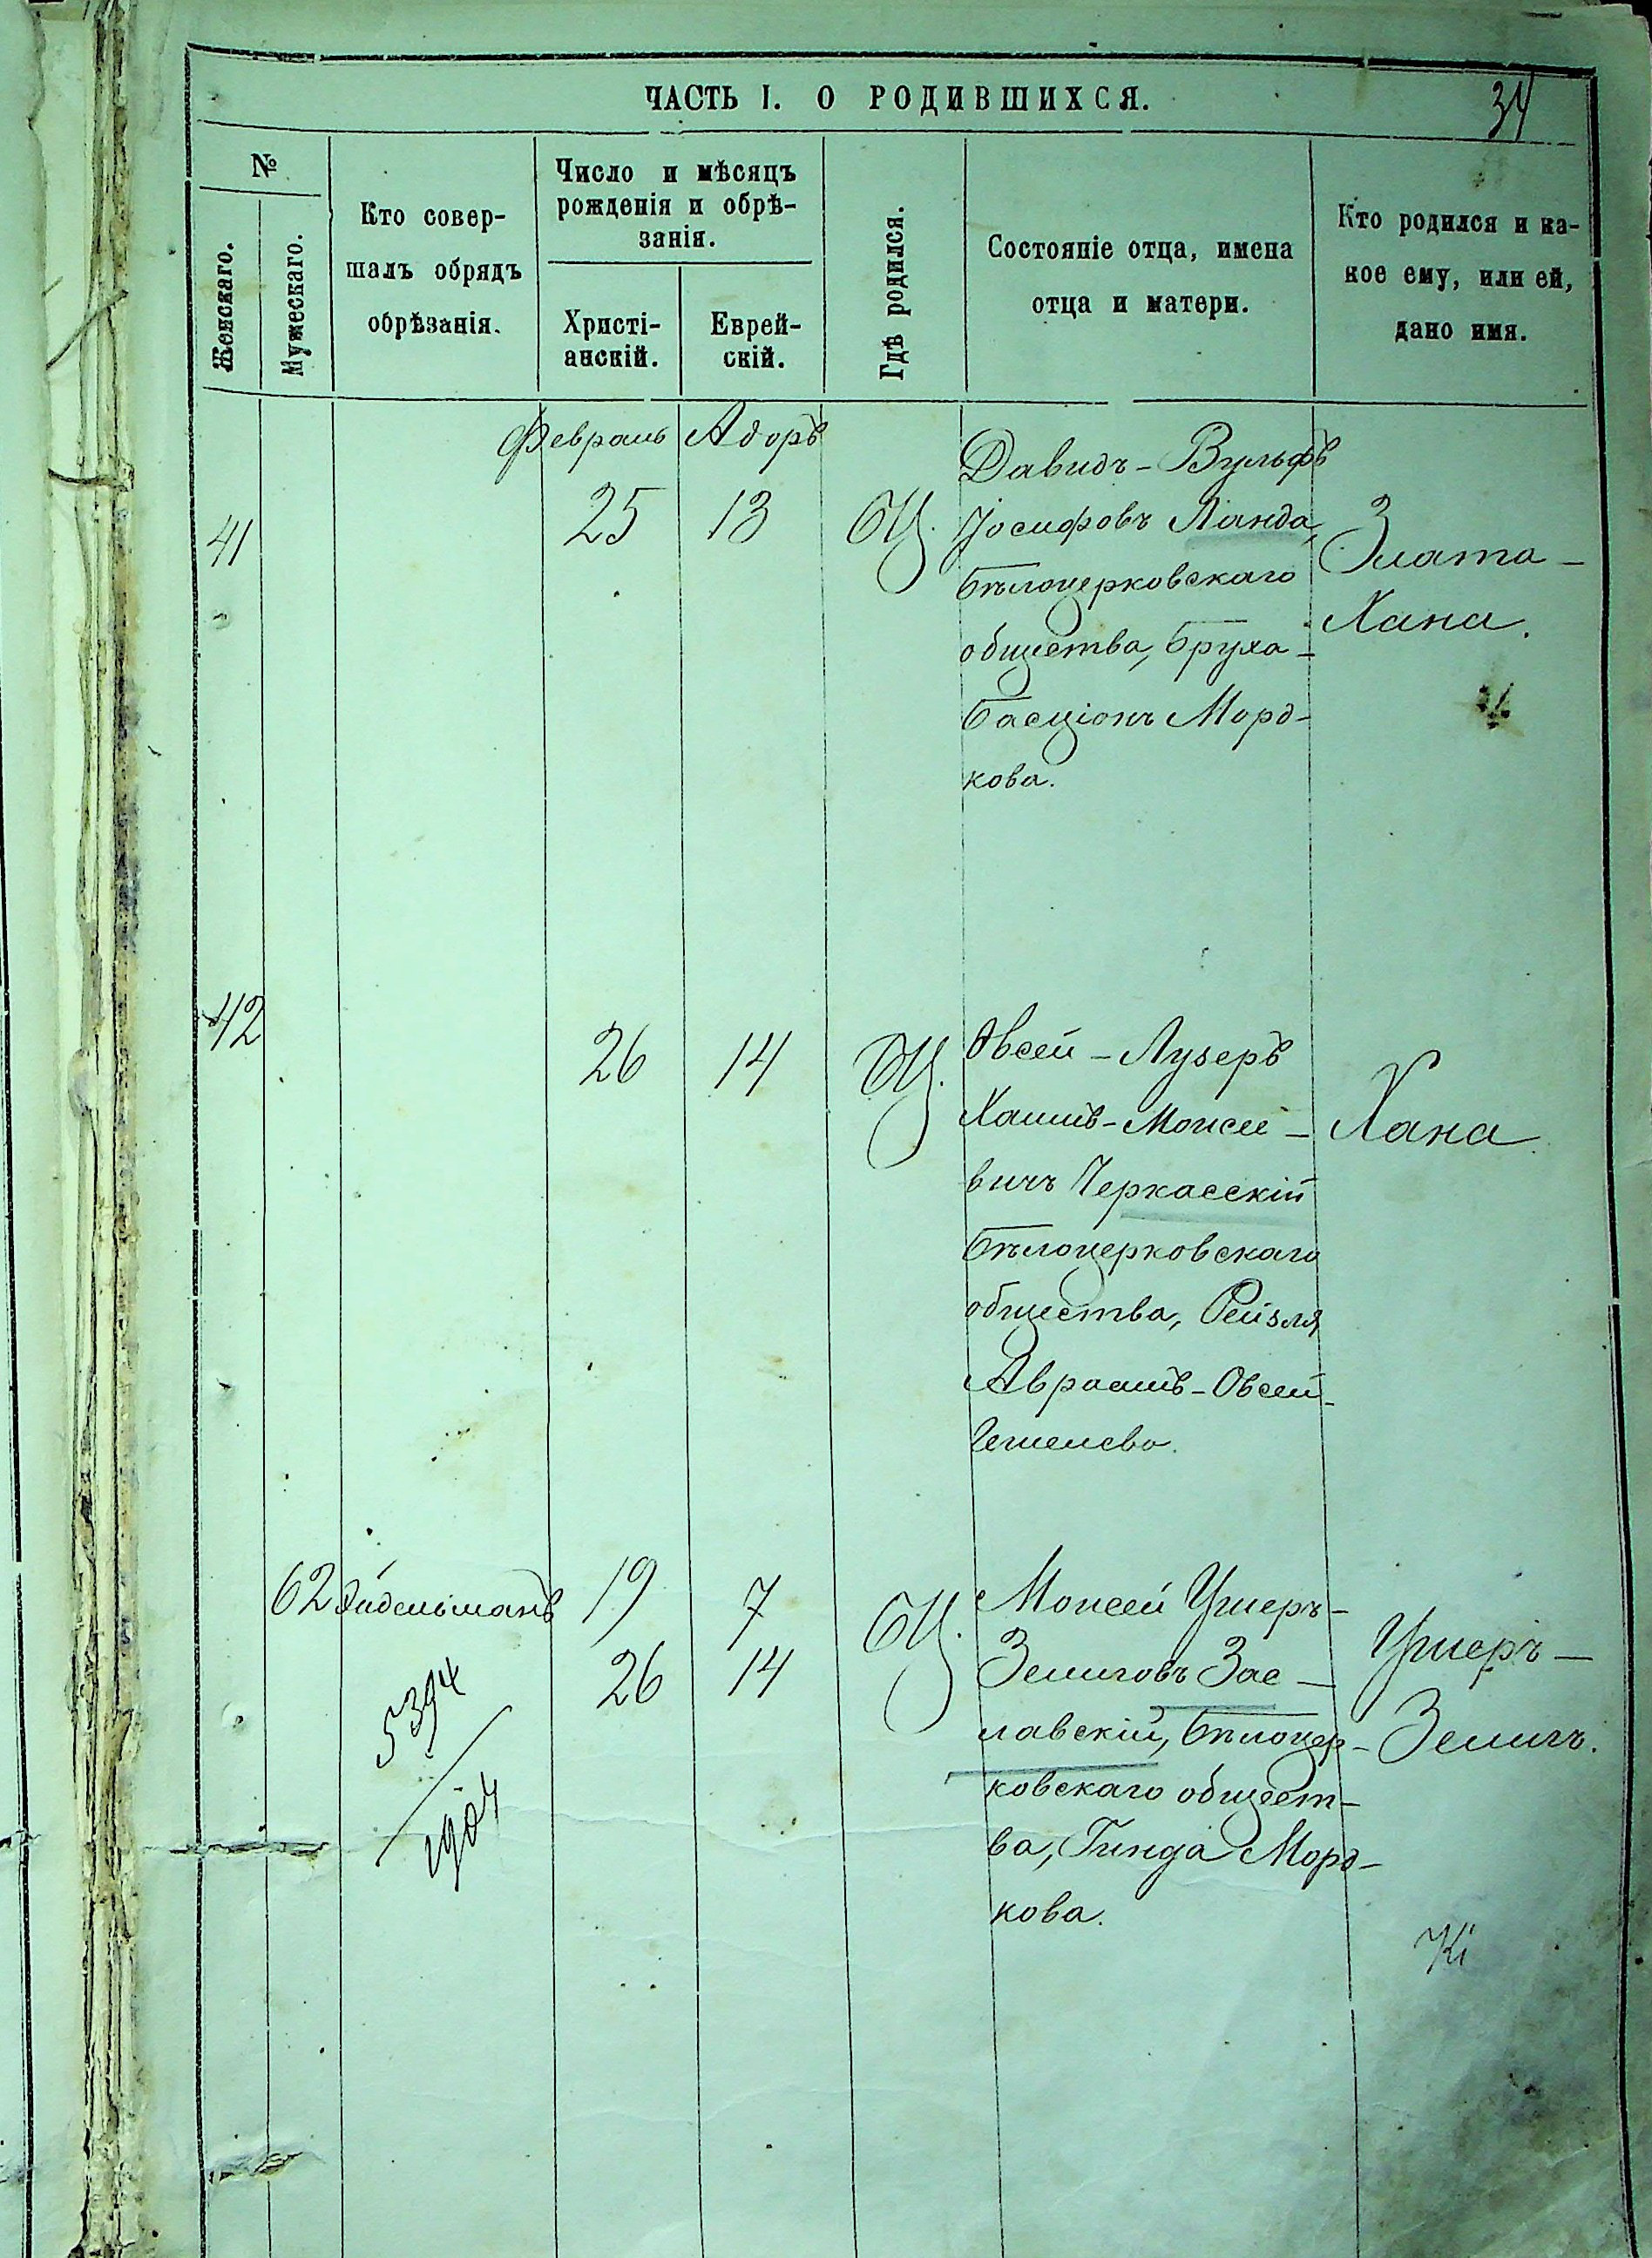 34
ЧАСТЬ I. О РОДИВШИХСЯ.
№
Женскаго.
Мужескаго.
Кто совер-
шалъ обрядъ
обрѣзанія.
Число и мѣсяцъ
рожденія и обрѣ-
занія.
Христі-
анскій.
Еврей-
скій.
Гдѣ родился.
Состояніе отца, имена
отца и матери.
Кто родился и ка-
кое ему, или ей,
дано имя.
Февраль Адоръ
41
25 13
БЦ.
Давидъ-Вульфъ
Іосифовъ Ланда,
Бѣлоцерковскаго
общества, Бруха-
Басціонъ Морд-
кова.
Злата-
Хана.
42
26 14
БЦ.
Овсей-Лузеръ
Хаимъ-Моисее-
вичъ Черкасскій
Бѣлоцерковскаго
общества, Рейзля
Авраамъ-Овсей-
Гешелева.
Хана
62 Эйдельманъ
19 7
26 14
5394
1904
БЦ.
Моисей Ушеръ-
Зелиговъ Зас-
лавскій, Бѣлоцер-
ковскаго общест-
ва, Гинда Морд-
кова.
Ушеръ-
Зелигъ.